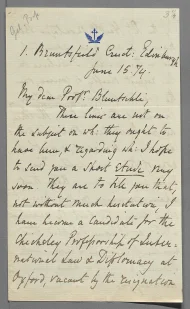 1. Bruntsfield Crest: Edinburgh
June 15. 74.
My dear Profr. Bluntschli,
These lines are not on
the subject on wh: they ought to
have been, & regarding wh: I hope
to send you a short Etude very
soon. They are to tell you that,
not without much hesitation, I
have become a Candidate for the
Chicheley Professorship of Inter-
national Law & Diplomacy at
Oxford, vacant by the resignation